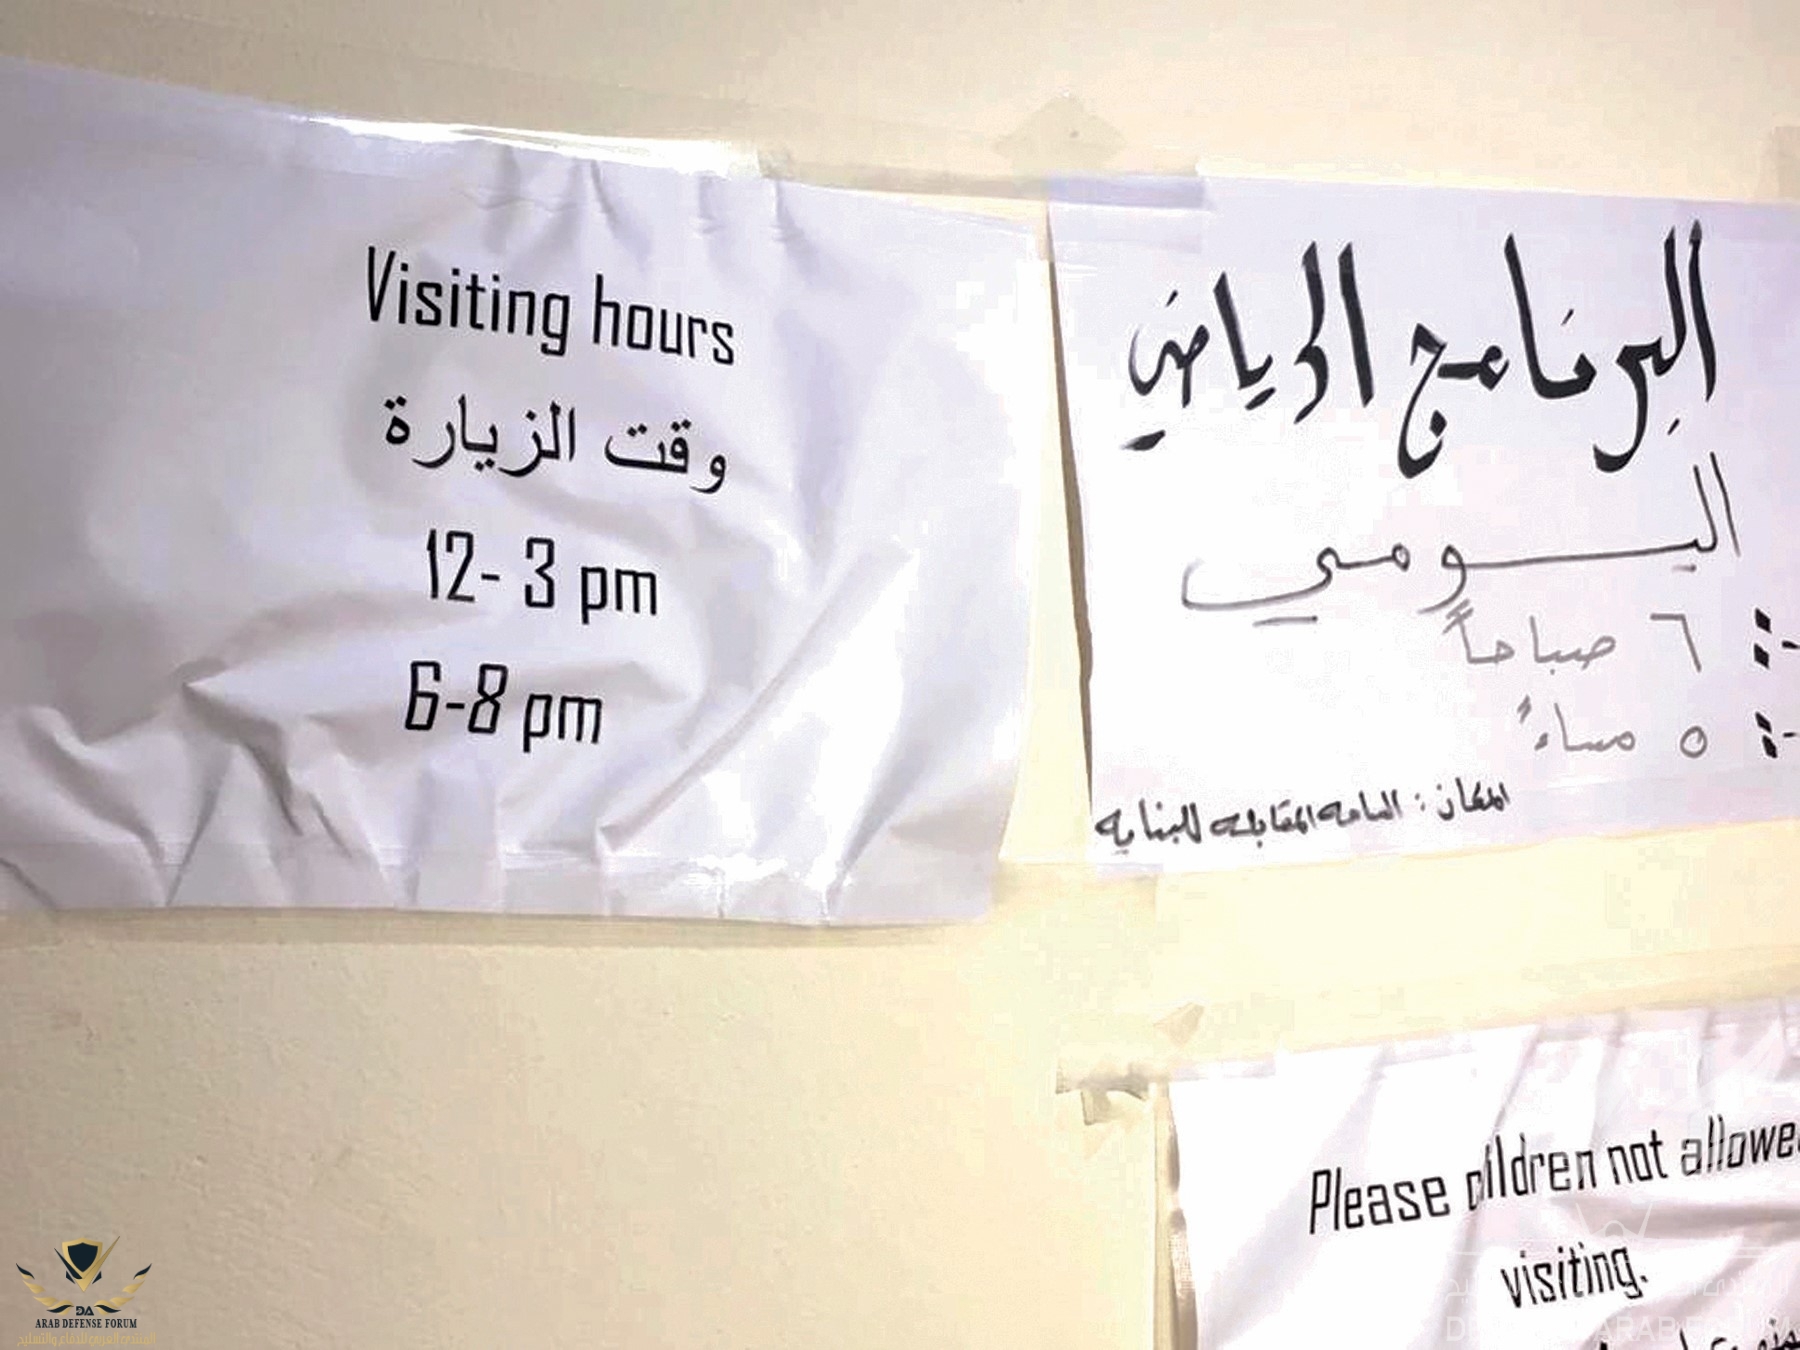 Visiting hours
وقت الزيارة
12- 3 pm
6-8 pm
البرنامج الرياضي
اليومي
٦ صباحاً
٥ مساءً
المكان: الساحة المقابلة للبناية
Please children not allowed
visiting.
ARAB DEFENSE FORUM
المنتدى العربي للدفاع والتسليح